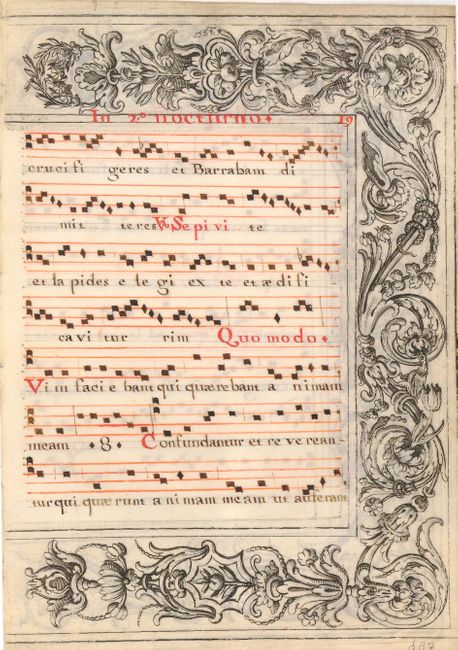 In 2º nocturno. 19
crucifi geres et Barrabam di
mit teres ℣ Sepivi te
et lapides e le gi ex te et ædi fi
cavi tur rim Quo modo.
Vim faci e bant qui quærebant a nimam
meam . 8 . Confundantur et re ve rean-
tur qui quærunt a nimam meam ut auferant